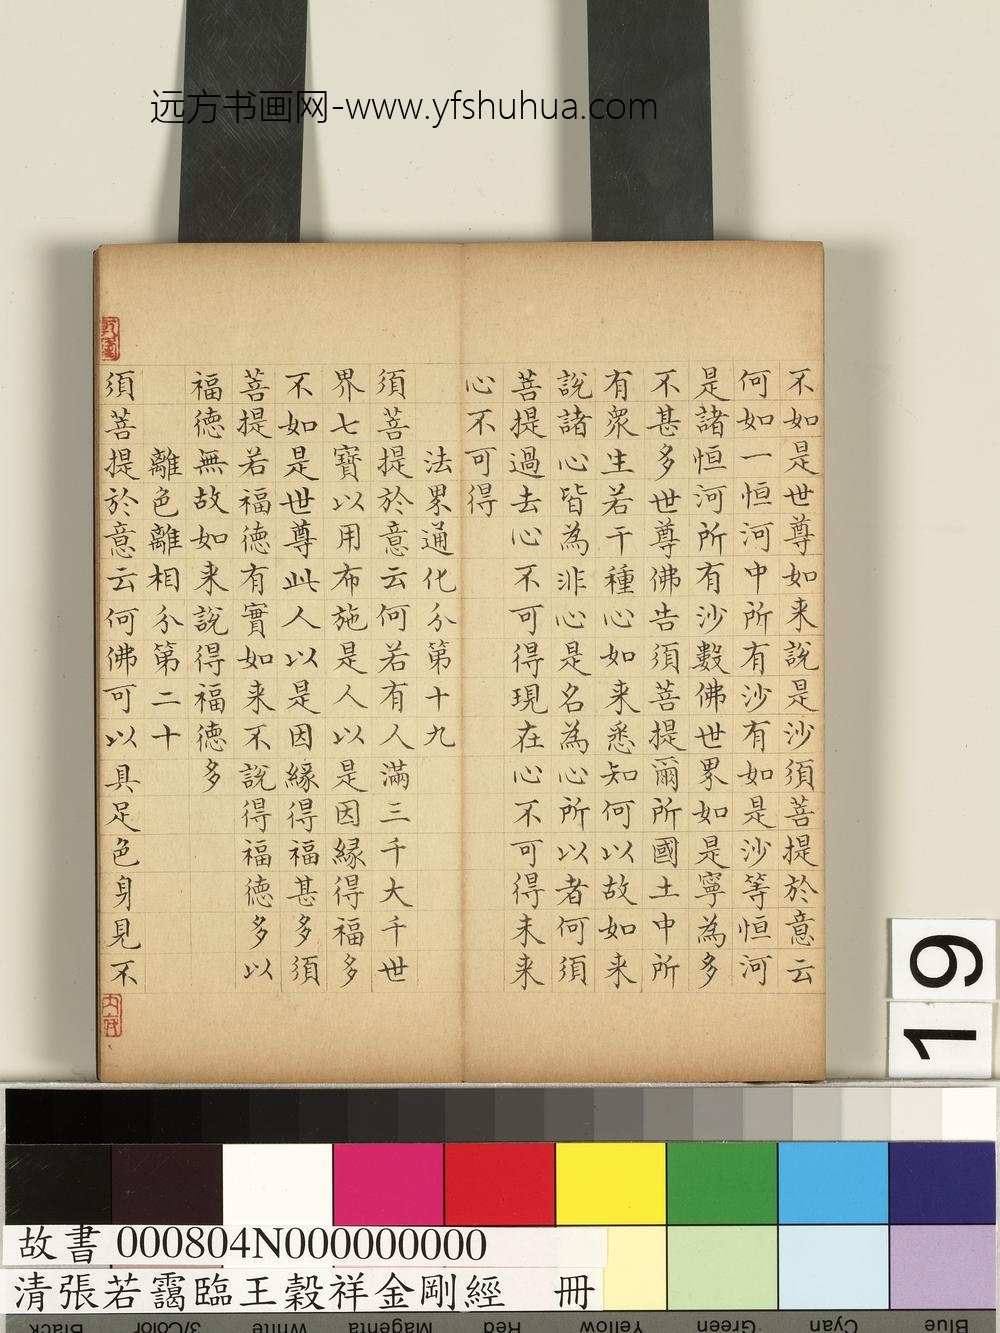 远方书画网-www.yfshuhua.com
不如是世尊如来說是沙須菩提於意云
何如一恒河中所有沙有如是沙等恒河
是諸恒河所有沙數佛世界如是寧為多
不甚多世尊佛告須菩提爾所國土中所
有衆生若干種心如来悉知何以故如来
說諸心皆為非心是名為心所以者何須
菩提過去心不可得現在心不可得未来
心不可得
法界通化分第十九
須菩提於意云何若有人滿三千大千世
界七寶以用布施是人以是因緣得福多
不如是世尊此人以是因緣得福甚多須
菩提若福德有實如来不說得福德多以
福德無故如来說得福德多
離色離相分第二十
須菩提於意云何佛可以具足色身見不
19
故書 000804N000000000
清張若靄臨王穀祥金剛經 冊
Black
3/Color
White
Magenta
Red
Yellow
Green
Cyan
Blue